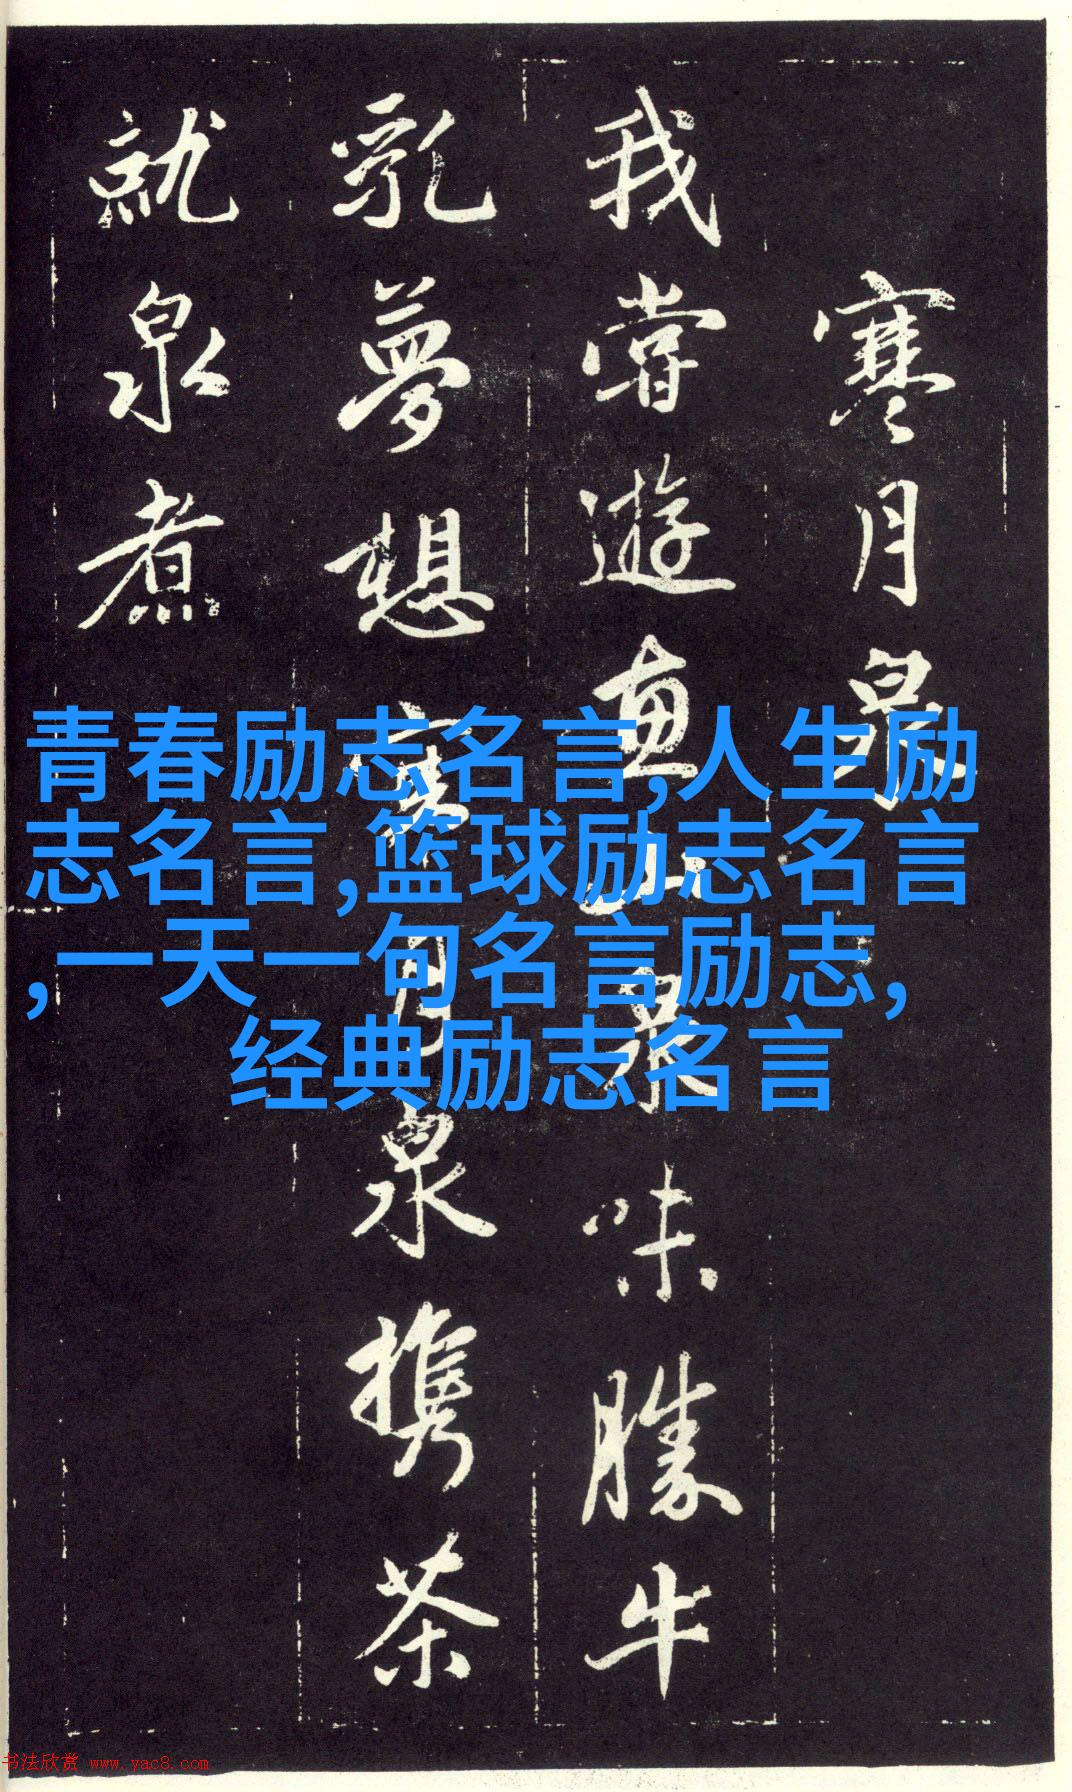 寒月泉
我嘗遊惠山泉味勝牛
乳夢想寒月泉携茶
就泉煮
青春励志名言,人生励
志名言,篮球励志名言
,一天一句名言励志,
经典励志名言
书法欣赏 www.yac8.com